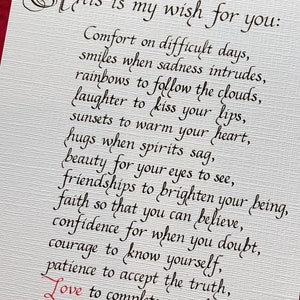 This is my wish for you:
Comfort on difficult days,
smiles when sadness intrudes,
rainbows to follow the clouds,
laughter to kiss your lips,
sunsets to warm your heart,
hugs when spirits sag,
beauty for your eyes to see,
friendships to brighten your being,
faith so that you can believe,
confidence for when you doubt,
courage to know yourself,
patience to accept the truth,
Love to